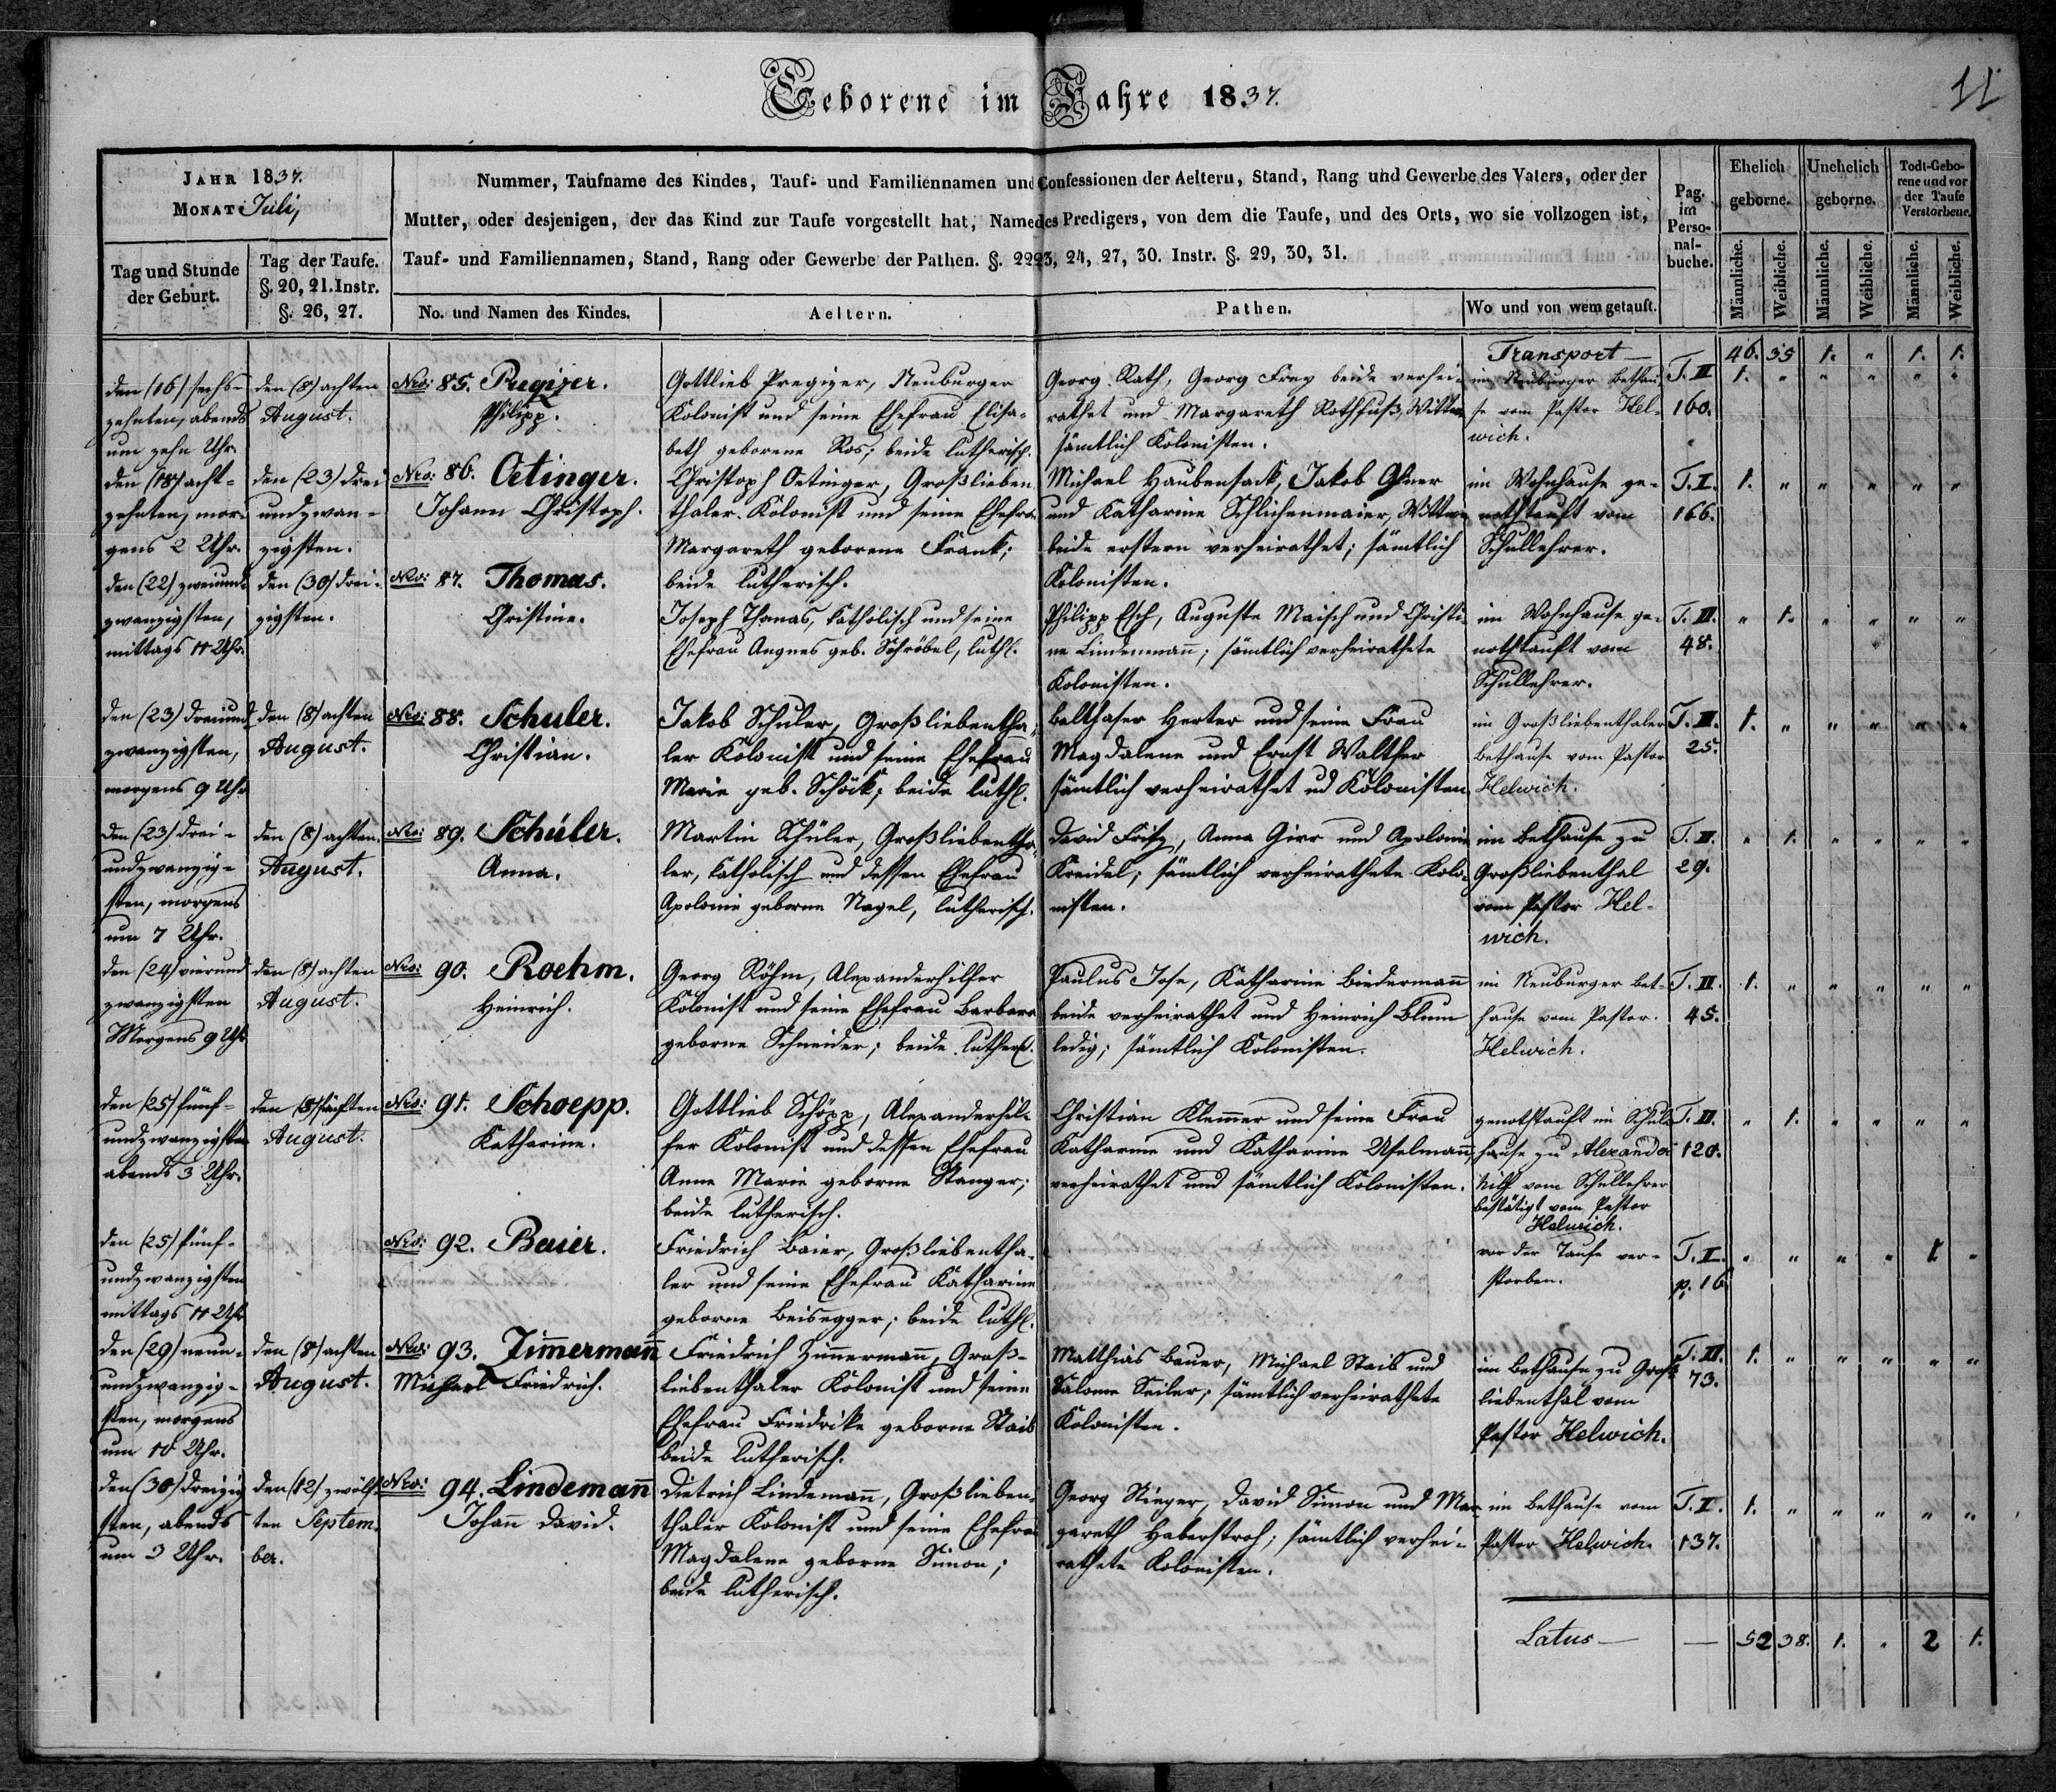 Geborene im Jahre 1837.
11
JAHR 1837.
MONAT Juli,
Tag und Stunde
der Geburt.
Tag der Taufe.
§. 20, 21. Instr.
§. 26, 27.
Nummer, Taufname des Kindes, Tauf- und Familiennamen und Confessionen der Aeltern, Stand, Rang und Gewerbe des Vaters, oder der
Mutter, oder desjenigen, der das Kind zur Taufe vorgestellt hat, Name des Predigers, von dem die Taufe, und des Orts, wo sie vollzogen ist,
Tauf- und Familiennamen, Stand, Rang oder Gewerbe der Pathen. §. 22 23, 24, 27, 30. Instr. §. 29, 30, 31.
No. und Namen des Kindes.
Aeltern.
Pathen.
Wo und von wem getauft.
Pag.
im
Perso-
nal-
buche.
Ehelich
geborne.
Unehelich
geborne.
Todt-Gebo-
rene und vor
der Taufe
Verstorbene.
Männliche.
Weibliche.
Männliche.
Weibliche.
Männliche.
Weibliche.
Transport — 46. 35 1. „ 1. 1.
den (16) sechs-
zehnten, abends
um zehn Uhr.
den (8) achten
August.
Nro: 85. Pregizer.
Philipp.
Gottlieb Pregizer, Neuburger
Kolonist und seine Ehefrau Elisa-
beth geborene Ros; beide lutherisch.
Georg Rath, Georg Frey beide verhei-
rathet und Margareth Rothfuß, Wittwe
sämtlich Kolonisten.
im Neuburger Bethau-
se vom Pastor Hel-
wich.
T. III
160.
1. „ „ „ „ „
den (18) acht-
zehnten, mor-
gens 2 Uhr.
den (23) drei
undzwan-
zigsten.
Nro: 86. Oetinger.
Johann Christoph.
Christoph Oetinger, Großlieben
thaler Kolonist und seine Ehefrau
Margareth geborene Frank;
beide lutherisch.
Michael Haubensack, Jakob
und Katharine Schlichenmaier, Wittwe
beide erstern verheirathet; sämtlich
Kolonisten.
im Wohnhause ge-
nothtauft vom
Schullehrer.
T. I.
166.
1. „ „ „ „ „
den (22) zweiund-
zwanzigsten,
mittags 11 Uhr.
den (30) drei-
zigsten.
Nro: 87. Thomas.
Christine.
Joseph Thomas, katholisch und seine
Ehefrau Angnes geb. Schröbel, luth.
Philipp Esch, Auguste Maisch und Christi-
ne Lindenmañ; sämtlich verheirathete
Kolonisten.
im Wohnhause ge-
nothtauft vom
Schullehrer.
T. III.
48.
„ 1. „ „ „ „
den (23) dreiund
zwanzigsten,
morgens 9 Uhr
den (8) achten
August.
Nro: 88. Schuler.
Christian.
Jakob Schuler, Großliebentha-
ler Kolonist und seine Ehefrau
Marie geb. Schöck; beide luth.
Balthaser Herter und seine Frau
Magdalene und Ernst Walther
sämtlich verheirathet ud Kolonisten
im Großliebenthaler
Bethause vom Pastor
Helwich.
T. III.
25.
1. „ „ „ „ „
den (23) drei-
undzwanzig-
sten, morgens
um 7 Uhr.
den (8) achten
August.
Nro: 89. Schüler.
Anna.
Martin Schüler, Großliebentha-
ler, katholisch und dessen Ehefrau
Apolonie geborne Nagel, lutherisch.
David Fritz, Anna Girr und Apolonie
Kreidel; sämtlich verheirathete Kolo-
nisten.
im Bethause zu
Großliebenthal
vom Pastor Hel-
wich.
T. II.
29.
„ 1. „ „ „ „
den (24) vierund
zwanzigsten
Morgens 9 Uhr
den (8) achten
August.
Nro: 90. Roehm.
Heinrich.
Georg Röhm, Alexanderhilfer
Kolonist und seine Ehefrau Barbara
geborne Schneider; beide luther.
Paulus Jose, Katharine Biedermañ
beide verheirathet und Heinrich Blum
ledig; sämtlich Kolonisten.
im Neuburger Bet-
hause vom Pastor.
Helwich.
T. III.
45.
1. „ „ „ „ „
den (25) fünf-
undzwanzigsten
abends 3 Uhr.
den (8) achten
August.
Nro: 91. Schoepp.
Katharine.
Gottlieb Schöpp, Alexanderhil-
fer Kolonist und dessen Ehefrau
Anne Marie geborne Stanger;
beide lutherisch.
Christian Klem̃er und seine Frau
Katharine und Katharine Uselmañ;
verheirathet und sämtlich Kolonisten.
genothtauft im Schul-
hause zu Alexander
hilf vom Schullehrer
bestätigt vom Pastor
Helwich.
T. II.
120.
„ 1. „ „ „ „
den (25) fünf-
undzwanzigsten
mittags 11 Uhr
Nro: 92. Baier.
Friedrich Baier, Großliebentha-
ler und seine Ehefrau Katharine
geborne Beisegger; beide luth.
vor der Taufe ver-
storben.
T. I.
p. 16.
„ „ „ „ 1. „
den (29) neun-
undzwanzig-
sten, morgens
um 10 Uhr.
den (8) achten
August.
Nro: 93. Zim̃ermañ
Michael Friedrich.
Friedrich Zim̃ermañ, Groß-
liebenthaler Kolonist und seine
Ehefrau Friedrike geborne Staib
beide lutherisch.
Matthias Bauer, Michael Staib und
Salome Seiler; sämtlich verheirathete
Kolonisten.
im Bethause zu Groß-
liebenthal vom
Pastor Helwich.
T. III.
73.
1. „ „ „ „ „
den (30) dreizig
sten, abends
um 3 Uhr.
den (12) zwölf-
ten Septem-
ber.
Nro: 94. Lindemañ
Johañ David.
Dietrich Lindemañ, Großlieben-
thaler Kolonist und seine Ehefrau
Magdalene geborne Simon;
beide lutherisch.
Georg Stieger, David Simon und Mar-
gareth Haberstroh; sämtlich verhei-
rathete Kolonisten.
im Bethause vom
Pastor Helwich.
T. I.
137.
1. „ „ „ „ „
Latus — — 52 38. 1. „ 2 1.